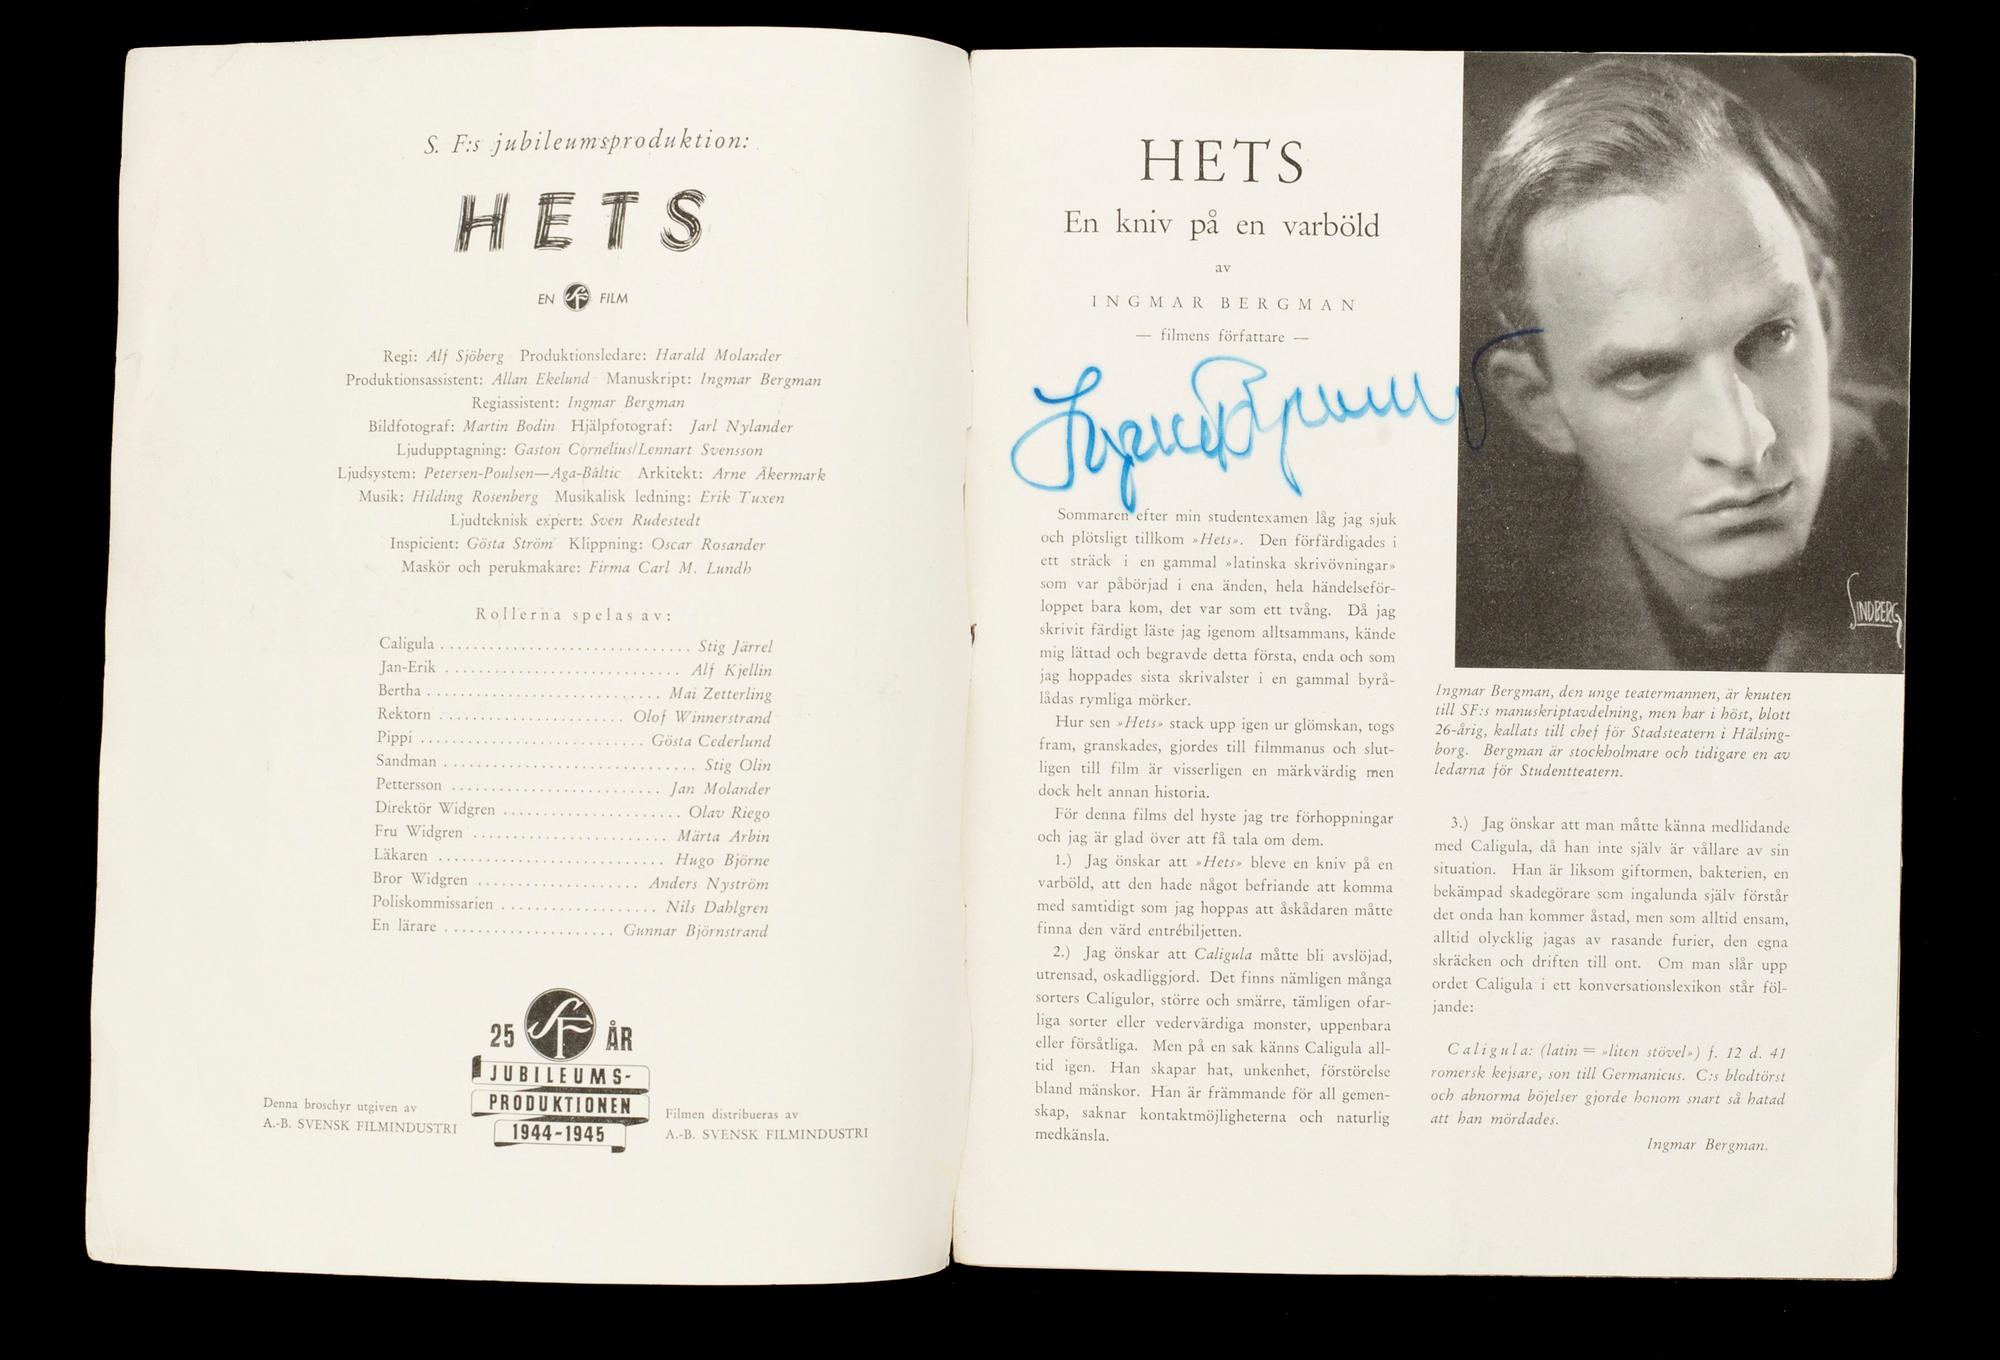 S. F:s jubileumsproduktion:
HETS
EN SF FILM
Regi: Alf Sjöberg Produktionsledare: Harald Molander
Produktionsassistent: Allan Ekelund Manuskript: Ingmar Bergman
Regiassistent: Ingmar Bergman
Bildfotograf: Martin Bodin Hjälpfotograf: Jarl Nylander
Ljudupptagning: Gaston Cornelius/Lennart Svensson
Ljudsystem: Petersen-Poulsen—Aga-Baltic Arkitekt: Arne Åkermark
Musik: Hilding Rosenberg Musikalisk ledning: Erik Tuxen
Ljudteknisk expert: Sven Rudestedt
Inspicient: Gösta Ström Klippning: Oscar Rosander
Maskör och perukmakare: Firma Carl M. Lundh
Rollerna spelas av:
Caligula .............................. Stig Järrel
Jan-Erik ............................ Alf Kjellin
Bertha ............................ Mai Zetterling
Rektorn ...................... Olof Winnerstrand
Pippi ........................... Gösta Cederlund
Sandman .............................. Stig Olin
Pettersson ......................... Jan Molander
Direktör Widgren ...................... Olav Riego
Fru Widgren ........................ Märta Arbin
Läkaren ........................... Hugo Björne
Bror Widgren .................... Anders Nyström
Poliskommissarien ................... Nils Dahlgren
En lärare ..................... Gunnar Björnstrand
25 SF ÅR
JUBILEUMS-
PRODUKTIONEN
1944-1945
Denna broschyr utgiven av
A.-B. SVENSK FILMINDUSTRI
Filmen distribueras av
A.-B. SVENSK FILMINDUSTRI
HETS
En kniv på en varböld
av
INGMAR BERGMAN
— filmens författare —
Ingmar Bergman
Sommaren efter min studentexamen låg jag sjuk
och plötsligt tillkom »Hets». Den förfärdigades i
ett sträck i en gammal »latinska skrivövningar»
som var påbörjad i ena änden, hela händelseför-
loppet bara kom, det var som ett tvång. Då jag
skrivit färdigt läste jag igenom alltsammans, kände
mig lättad och begravde detta första, enda och som
jag hoppades sista skrivalster i en gammal byrå-
lådas rymliga mörker.
Hur sen »Hets» stack upp igen ur glömskan, togs
fram, granskades, gjordes till filmmanus och slut-
ligen till film är visserligen en märkvärdig men
dock helt annan historia.
För denna films del hyste jag tre förhoppningar
och jag är glad över att få tala om dem.
1.) Jag önskar att »Hets» bleve en kniv på en
varböld, att den hade något befriande att komma
med samtidigt som jag hoppas att åskådaren måtte
finna den värd entrébiljetten.
2.) Jag önskar att Caligula måtte bli avslöjad,
utrensad, oskadliggjord. Det finns nämligen många
sorters Caligulor, större och smärre, tämligen ofar-
liga sorter eller vedervärdiga monster, uppenbara
eller försåtliga. Men på en sak känns Caligula all-
tid igen. Han skapar hat, unkenhet, förstörelse
bland mänskor. Han är främmande för all gemen-
skap, saknar kontaktmöjligheterna och naturlig
medkänsla.
LINDBERG
Ingmar Bergman, den unge teatermannen, är knuten
till SF:s manuskriptavdelning, men har i höst, blott
26-årig, kallats till chef för Stadsteatern i Hälsing-
borg. Bergman är stockholmare och tidigare en av
ledarna för Studentteatern.
3.) Jag önskar att man måtte känna medlidande
med Caligula, då han inte själv är vållare av sin
situation. Han är liksom giftormen, bakterien, en
bekämpad skadegörare som ingalunda själv förstår
det onda han kommer åstad, men som alltid ensam,
alltid olycklig jagas av rasande furier, den egna
skräcken och driften till ont. Om man slår upp
ordet Caligula i ett konversationslexikon står föl-
jande:
Caligula: (latin = »liten stövel») f. 12 d. 41
romersk kejsare, son till Germanicus. C:s blodtörst
och abnorma böjelser gjorde honom snart så hatad
att han mördades.
Ingmar Bergman.